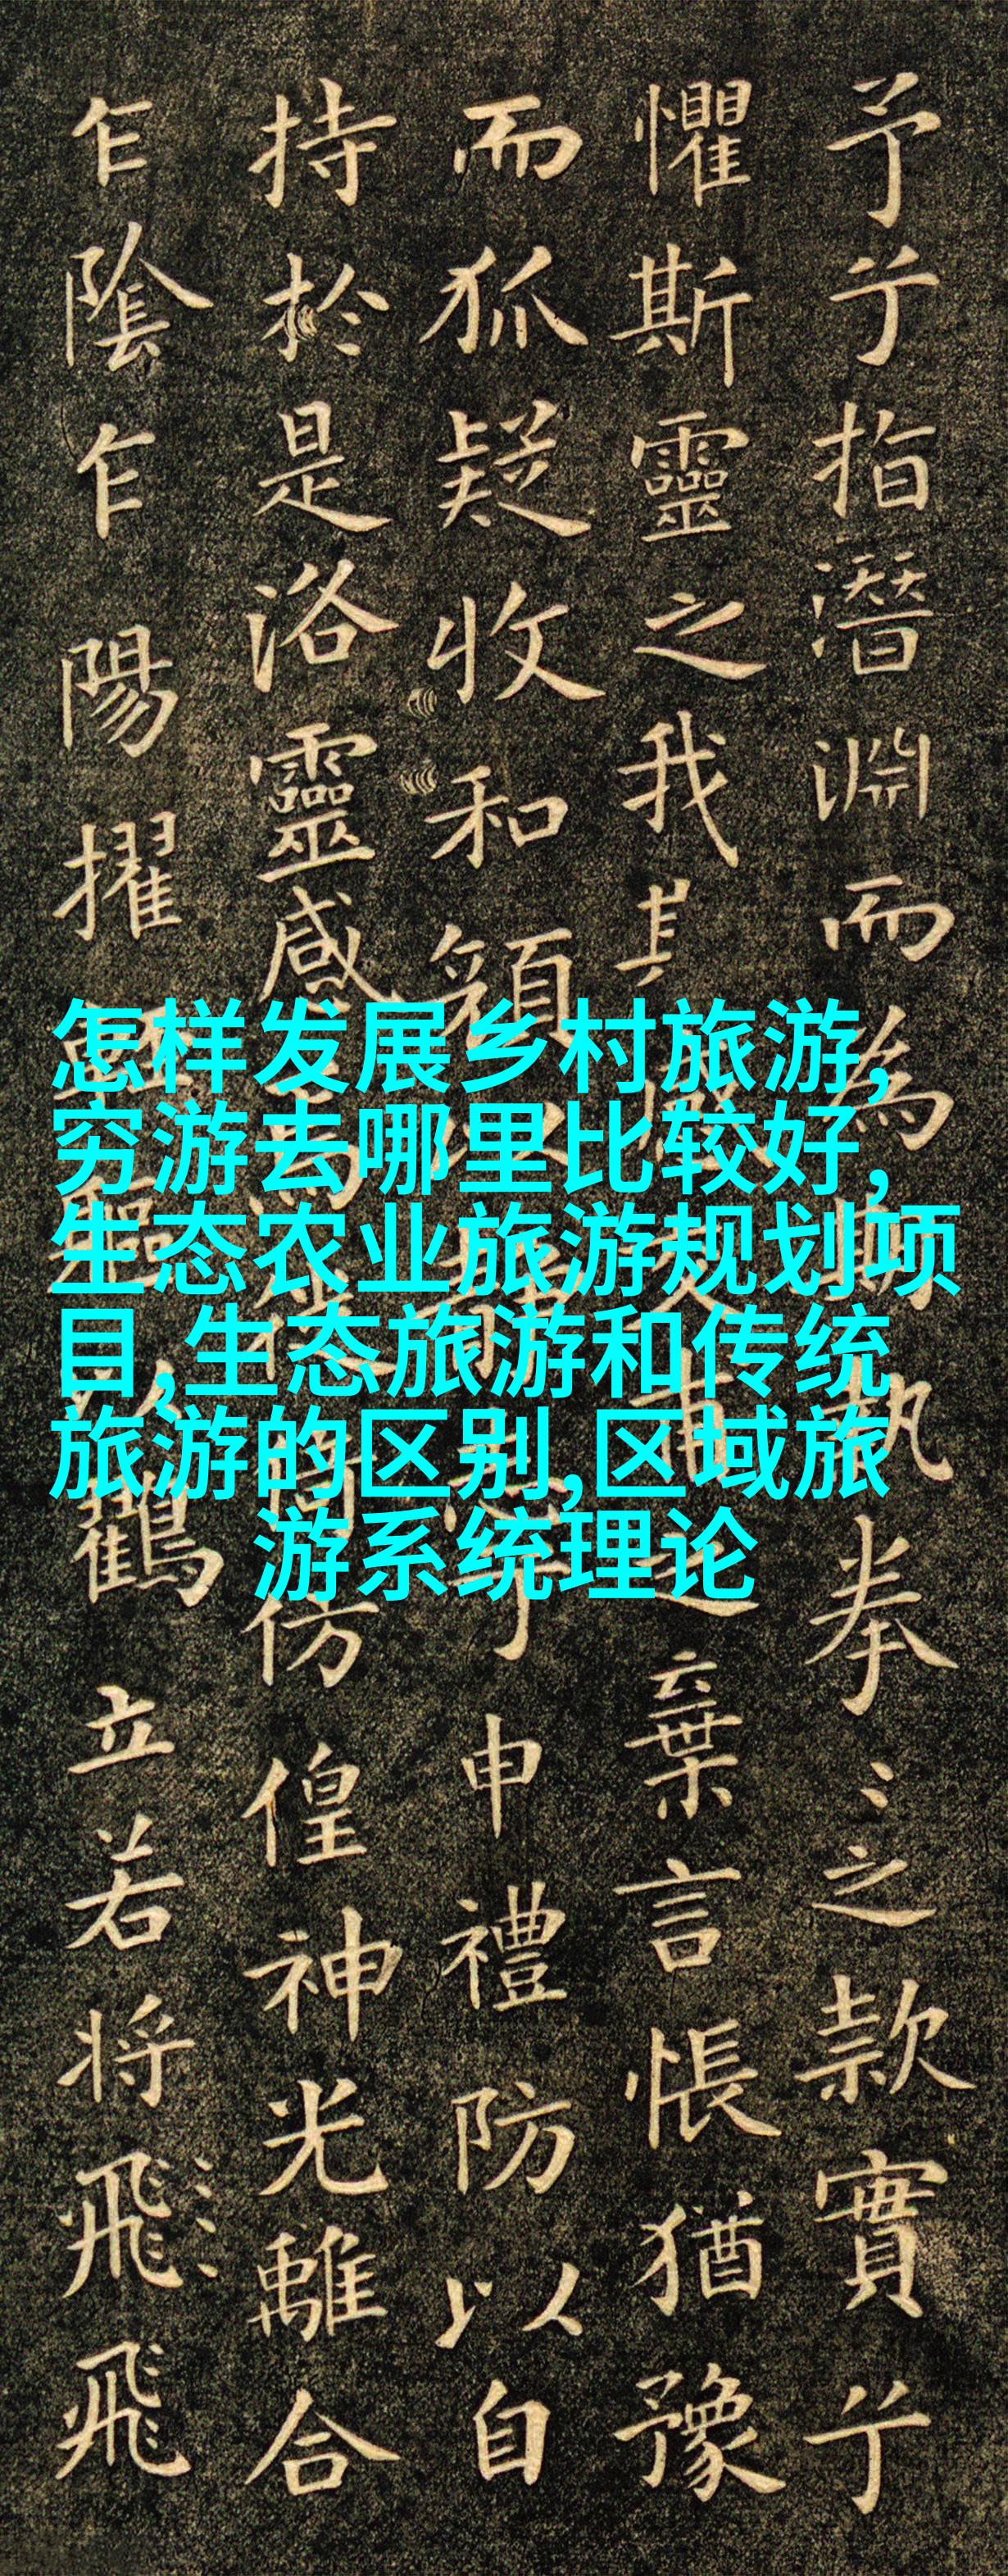 予兮指潛淵而為期執拳〻之款實兮
懼斯靈之我感交甫之棄言悵猶豫
而狐疑收和顏以靜志兮申禮防以自
持於是洛靈感焉徙倚仿偟神光離合
乍陰乍陽擢輕軀以鶴立若将飛飛
怎样发展乡村旅游,
穷游去哪里比较好,
生态农业旅游规划项
目,生态旅游和传统
旅游的区别,区域旅
游系统理论